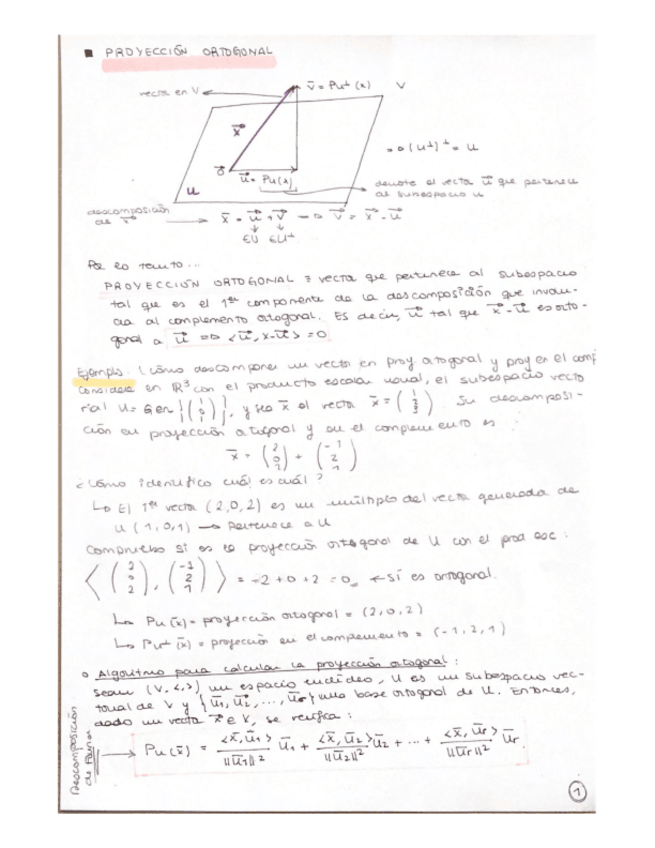 ■ PROYECCIÓN ORTOGONAL
vector en V
v̄ = Pu⊥(x)
V
x⃗
⇒ (U⊥)⊥ = U
0⃗
u⃗ = Pu(x)
U
denota el vector u⃗ que pertenece
al subespacio U
descomposición
de x⃗ → x̄ = u⃗ + v⃗ ⇒ v⃗ = x⃗ - u⃗
∈U ∈U⊥
Por lo tanto...
PROYECCIÓN ORTOGONAL = vector que pertenece al subespacio
tal que es el 1er componente de la descomposición que involu-
cra al complemento ortogonal. Es decir, u⃗ tal que x⃗-u⃗ es orto-
gonal a u⃗ ⇒ <u⃗, x-u⃗> = 0
Ejemplo. (Cómo descomponer un vector en proy ortogonal y proy en el comp
Considera en ℝ³ con el producto escalar usual, el subespacio vecto
rial U = Gen {(1 0 1)}, y sea x̄ el vector x̄ = (1 2 3) Su descomposi-
ción en proyección ortogonal y en el complemento es :
x̄ = (2 0 2) + (-1 2 1)
¿Cómo identifico cuál es cuál?
↳ El 1er vector (2,0,2) es un múltiplo del vector generador de
U (1,0,1) → Pertenece a U
Compruebo si es la proyección ortogonal de U con el prod esc:
⟨(2 0 2), (-1 2 1)⟩ = -2+0+2 = 0 ← Sí es ortogonal.
↳ Pu(x̄) = proyección ortogonal = (2,0,2)
↳ Pu⊥(x̄) = proyección en el complemento = (-1,2,1)
o Algoritmo para calcular la proyección ortogonal:
Sean (V,<,>) un espacio euclídeo, U es un subespacio vec-
torial de V y {ū1, ū2, ..., ūr} una base ortogonal de U. Entonces,
dado un vector x⃗ ∈ V, se verifica:
Descomposición
de Fourier
→ Pu(x̄) = <x̄,ū1>/||ū1||² ū1 + <x̄,ū2>/||ū2||² ū2 + ... + <x̄,ūr>/||ūr||² ūr.
1